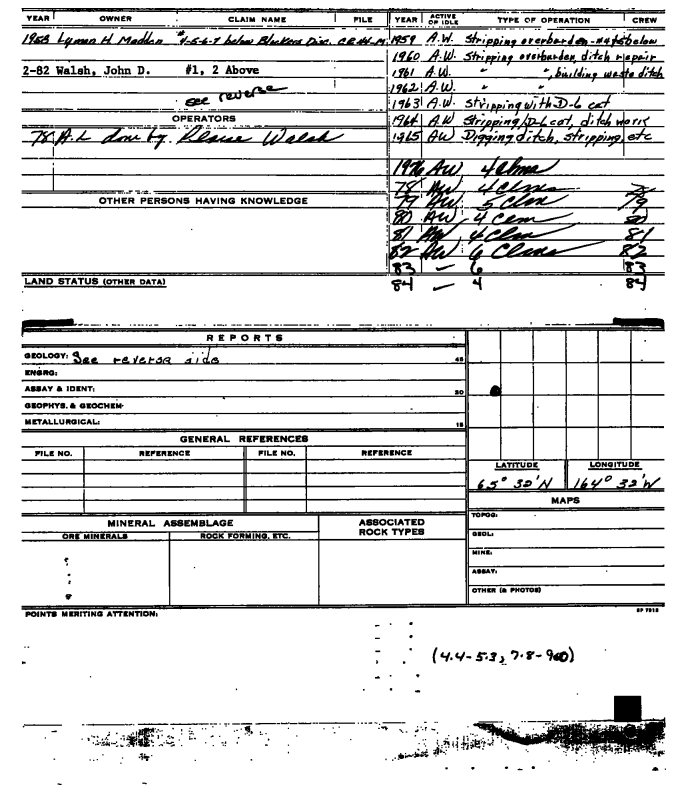 YEAR OWNER CLAIM NAME FILE YEAR ACTIVE OF IDLE TYPE OF OPERATION CREW
1958 Lyman H. Madden #4-5-6-7 below Disc. 1959 A.W. Stripping overburden below
1960 A.W. Stripping overburden, ditch repair
2-82 Walsh, John D. #1, 2 Above 1961 A.W. " ", building waste ditch
1962 A.W. " "
see reverse 1963 A.W. Stripping with D-6 cat
OPERATORS 1964 A.W. Stripping, D-6 cat, ditch work
78 A.L done by Blaise Walsh 1965 AW Digging ditch, stripping, etc
1976 AW 4 clms
78 AW 4 Clms
OTHER PERSONS HAVING KNOWLEDGE 79 AW 5 Clm 79
80 AW 4 Clm 80
81 AW 4 Clm 81
82 AW 6 Clms 82
83 — 6 83
LAND STATUS (OTHER DATA) 84 — 4 84
REPORTS
GEOLOGY: See reverse side 45
ENGRG:
ASSAY & IDENT: 30
GEOPHYS. & GEOCHEM.
METALLURGICAL: 15
GENERAL REFERENCES
FILE NO. REFERENCE FILE NO. REFERENCE
LATITUDE LONGITUDE
65° 32'N 164° 32'W
MAPS
MINERAL ASSEMBLAGE ASSOCIATED ROCK TYPES TOPOG:
ORE MINERALS ROCK FORMING, ETC. GEOL:
MINE:
ASSAY:
OTHER (& PHOTOS)
POINTS MERITING ATTENTION:
(4.4-5.3, 7.8-9.0)